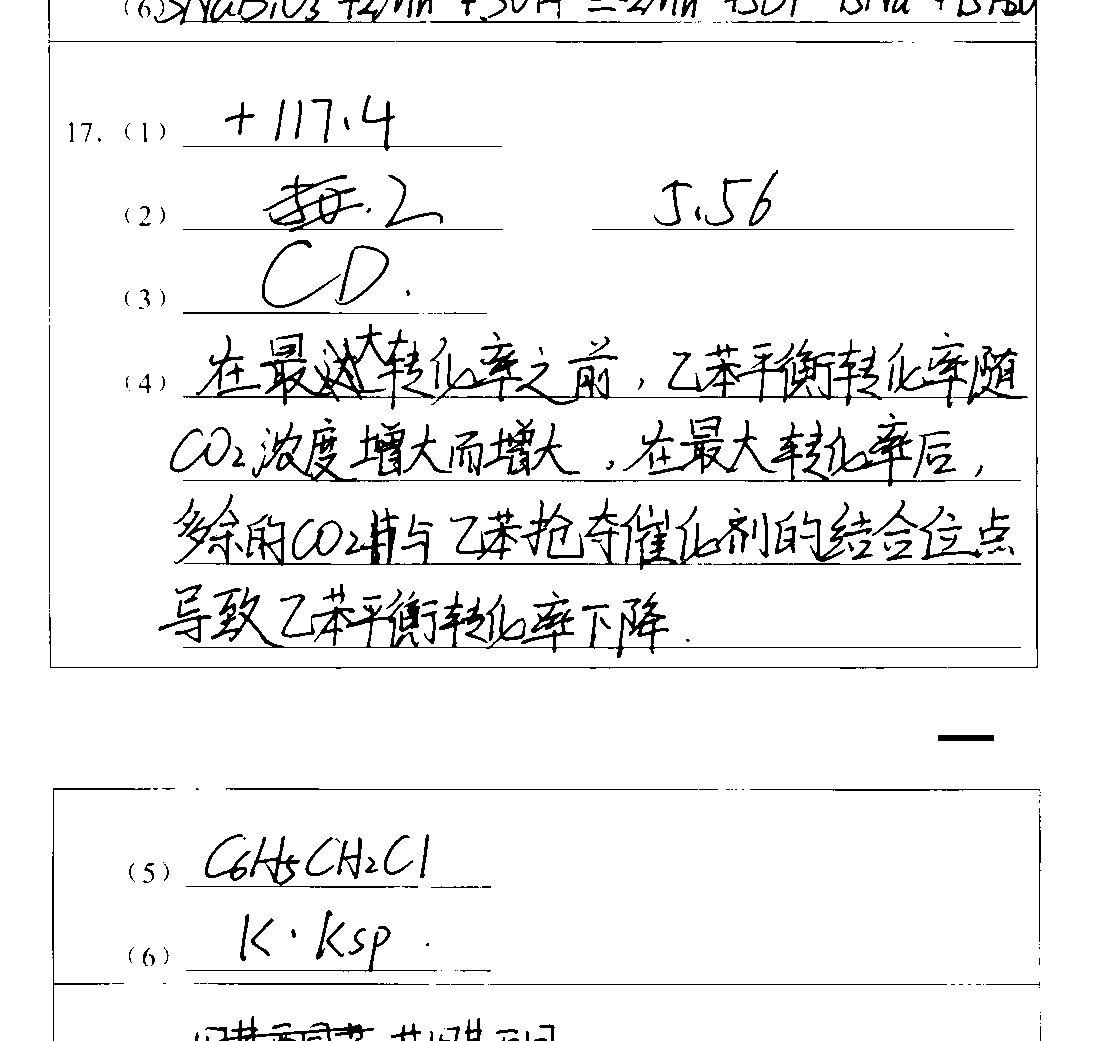 17. (1) +117.4
(2) 2 5.56
(3) CD.
(4) 在最大转化率之前，乙苯平衡转化率随
CO₂浓度增大而增大，在最大转化率后，
多余的CO₂将与乙苯抢夺催化剂的结合位点
导致乙苯平衡转化率下降.
(5) C₆H₅CH₂Cl
(6) K·Ksp.